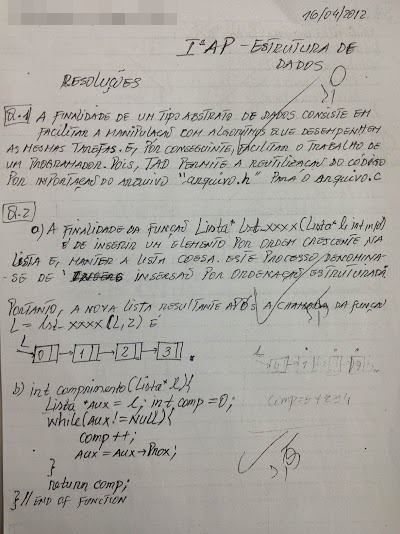 16/04/2012
Iª AP - ESTRUTURA DE
DADOS
RESOLUÇÕES
Q.1 A FINALIDADE DE UM TIPO ABSTRATO DE DADOS CONSISTE EM
FACILITAR A MANIPULAÇÃO COM ALGORITMOS QUE DESEMPENHEM
AS MESMAS TAREFAS. E, POR CONSEGUINTE, FACILITAR O TRABALHO DE
UM PROGRAMADOR. POIS, TAD PERMITE A REUTILIZAÇÃO DO CÓDIGO
POR IMPORTAÇÃO DO ARQUIVO "arquivo.h" PARA O arquivo.c
Q.2
a) A FINALIDADE DA FUNÇÃO Lista* Lst_xxxx (Lista* l, int info)
É DE INSERIR UM ELEMENTO POR ORDEM CRESCENTE NA
LISTA E, MANTER A LISTA COESA. ESTE PROCESSO, DENOMINA-
SE DE INSERSÃO POR ORDENAÇÃO ESTRUTURADA
PORTANTO, A NOVA LISTA RESULTANTE APÓS A CHAMADA DA FUNÇÃO
L = lst_xxxx (L, 2) É
L
0 1 2 3
b) int comprimento (Lista* l){
Lista *Aux = l; int comp = 0;
while (Aux != NULL){
comp ++;
Aux = Aux → Prox;
}
return comp;
} // END OF FUNCTION